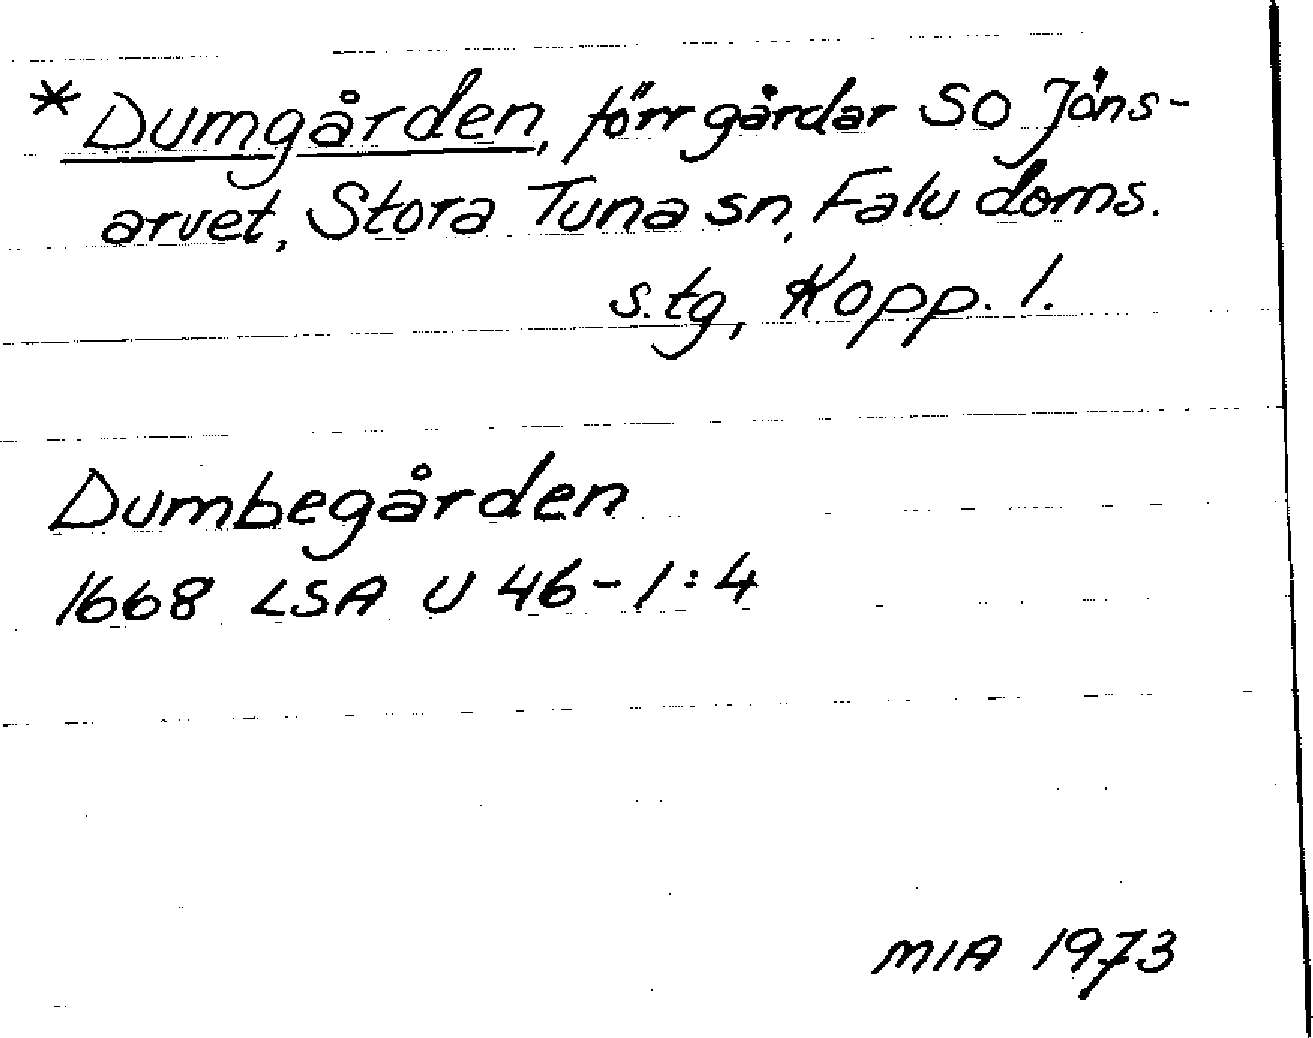 * Dumgården, förr gårdar SO Jöns-
arvet, Stora Tuna sn, Falu doms.
s.tg, Kopp. l.
Dumbegården
1668 LSA U 46-1:4
MIA 1973